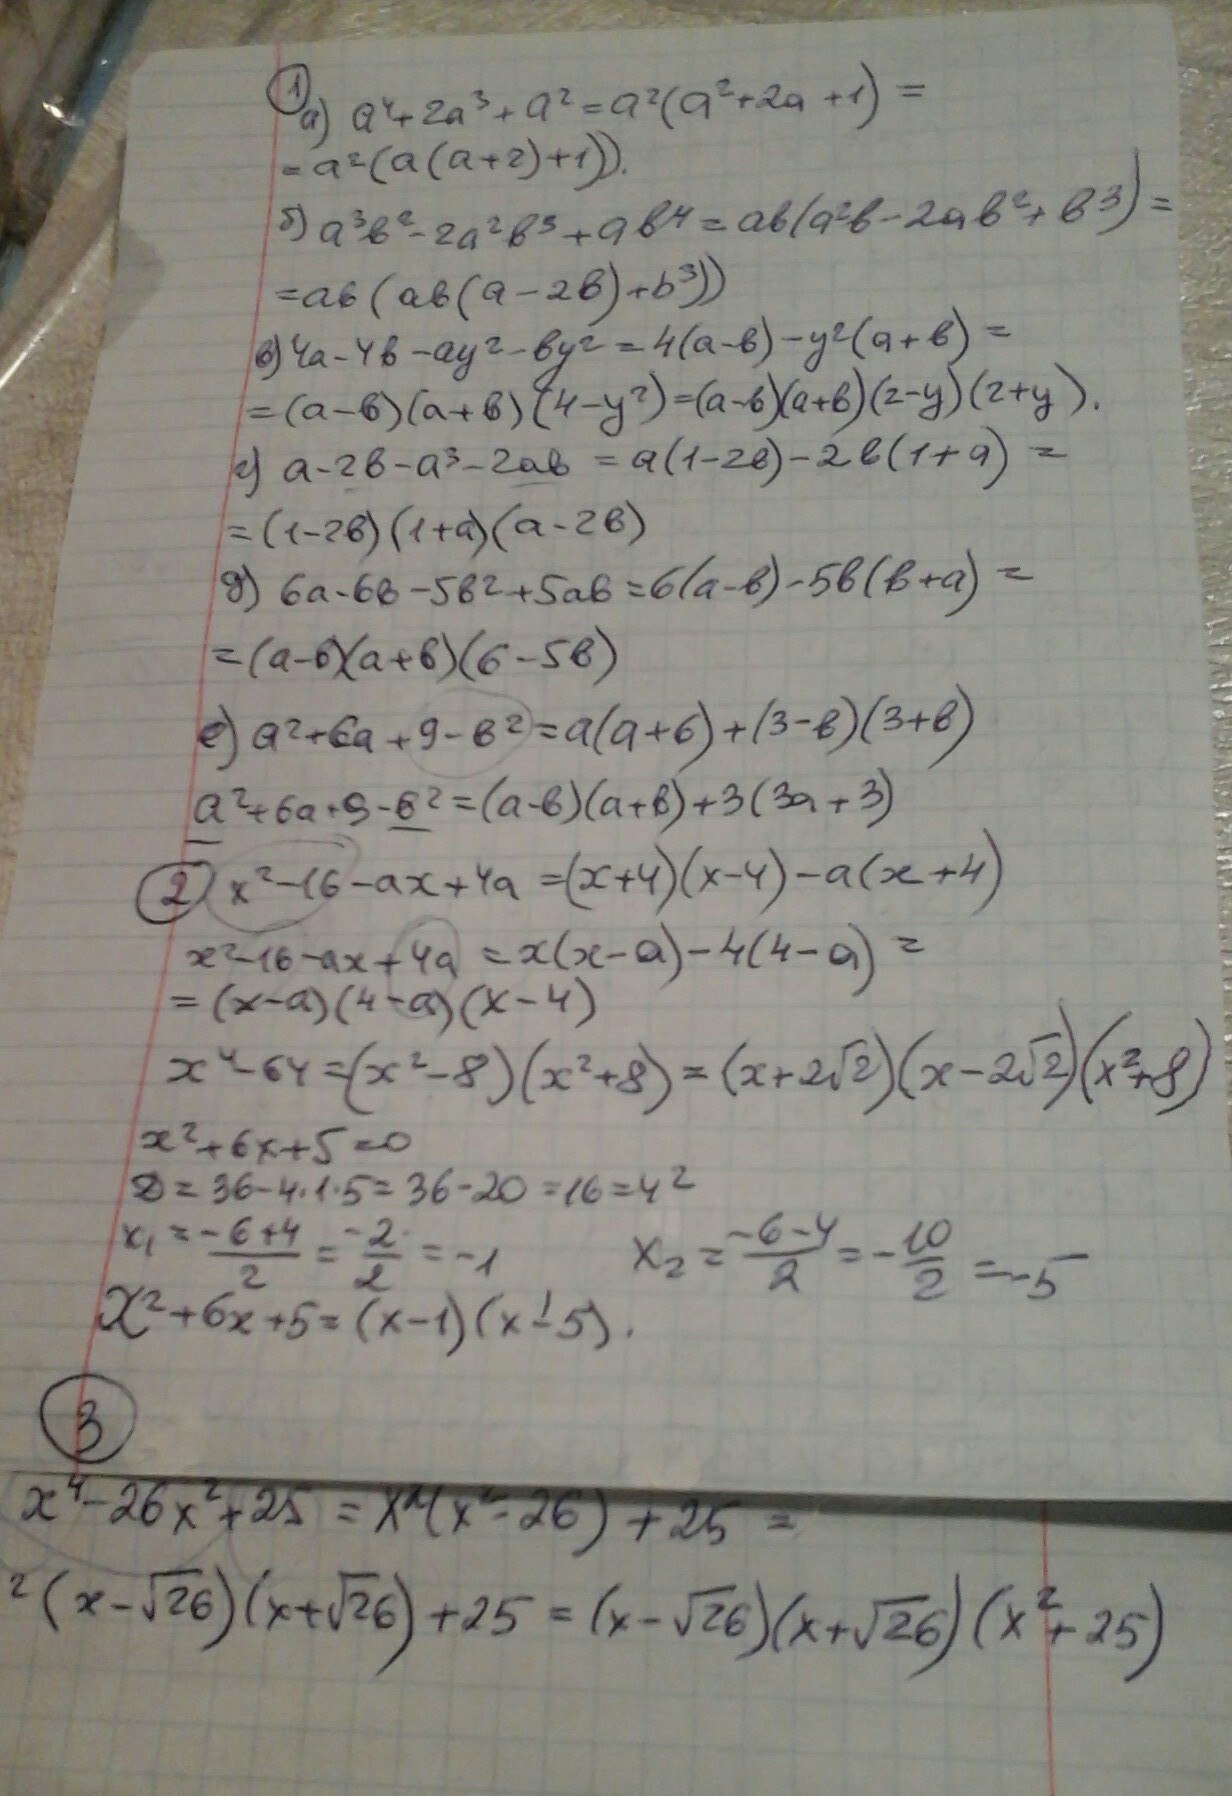 1
а) a⁴+2a³+a²=a²(a²+2a+1)=
=a²(a(a+2)+1)).
б) a³в²-2a²в³+aв⁴=aв(a²в-2aв²+в³)=
=aв(aв(a-2в)+b³))
в) 4a-4в-ay²-вy²=4(a-в)-y²(a+в)=
=(a-в)(a+в)(4-y²)=(a-в)(a+в)(2-y)(2+y).
г) a-2в-a³-2aв=a(1-2в)-2в(1+a)=
=(1-2в)(1+a)(a-2в)
д) 6a-6в-5в²+5aв=6(a-в)-5в(в+a)=
=(a-в)(a+в)(6-5в)
е) a²+6a+9-в²=a(a+6)+(3-в)(3+в)
a²+6a+9-в²=(a-в)(a+в)+3(3a+3)
2 x²-16-ax+4a=(x+4)(x-4)-a(x+4)
x²-16-ax+4a=x(x-a)-4(4-a)=
=(x-a)(4-a)(x-4)
x⁴-64=(x²-8)(x²+8)=(x+2√2)(x-2√2)(x²+8)
x²+6x+5=0
D=36-4·1·5=36-20=16=4²
x₁=(-6+4)/2=-2/2=-1 x₂=(-6-4)/2=-10/2=-5
x²+6x+5=(x-1)(x-5).
3
x⁴-26x²+25=x²(x²-26)+25=
²(x-√26)(x+√26)+25=(x-√26)(x+√26)(x²+25)